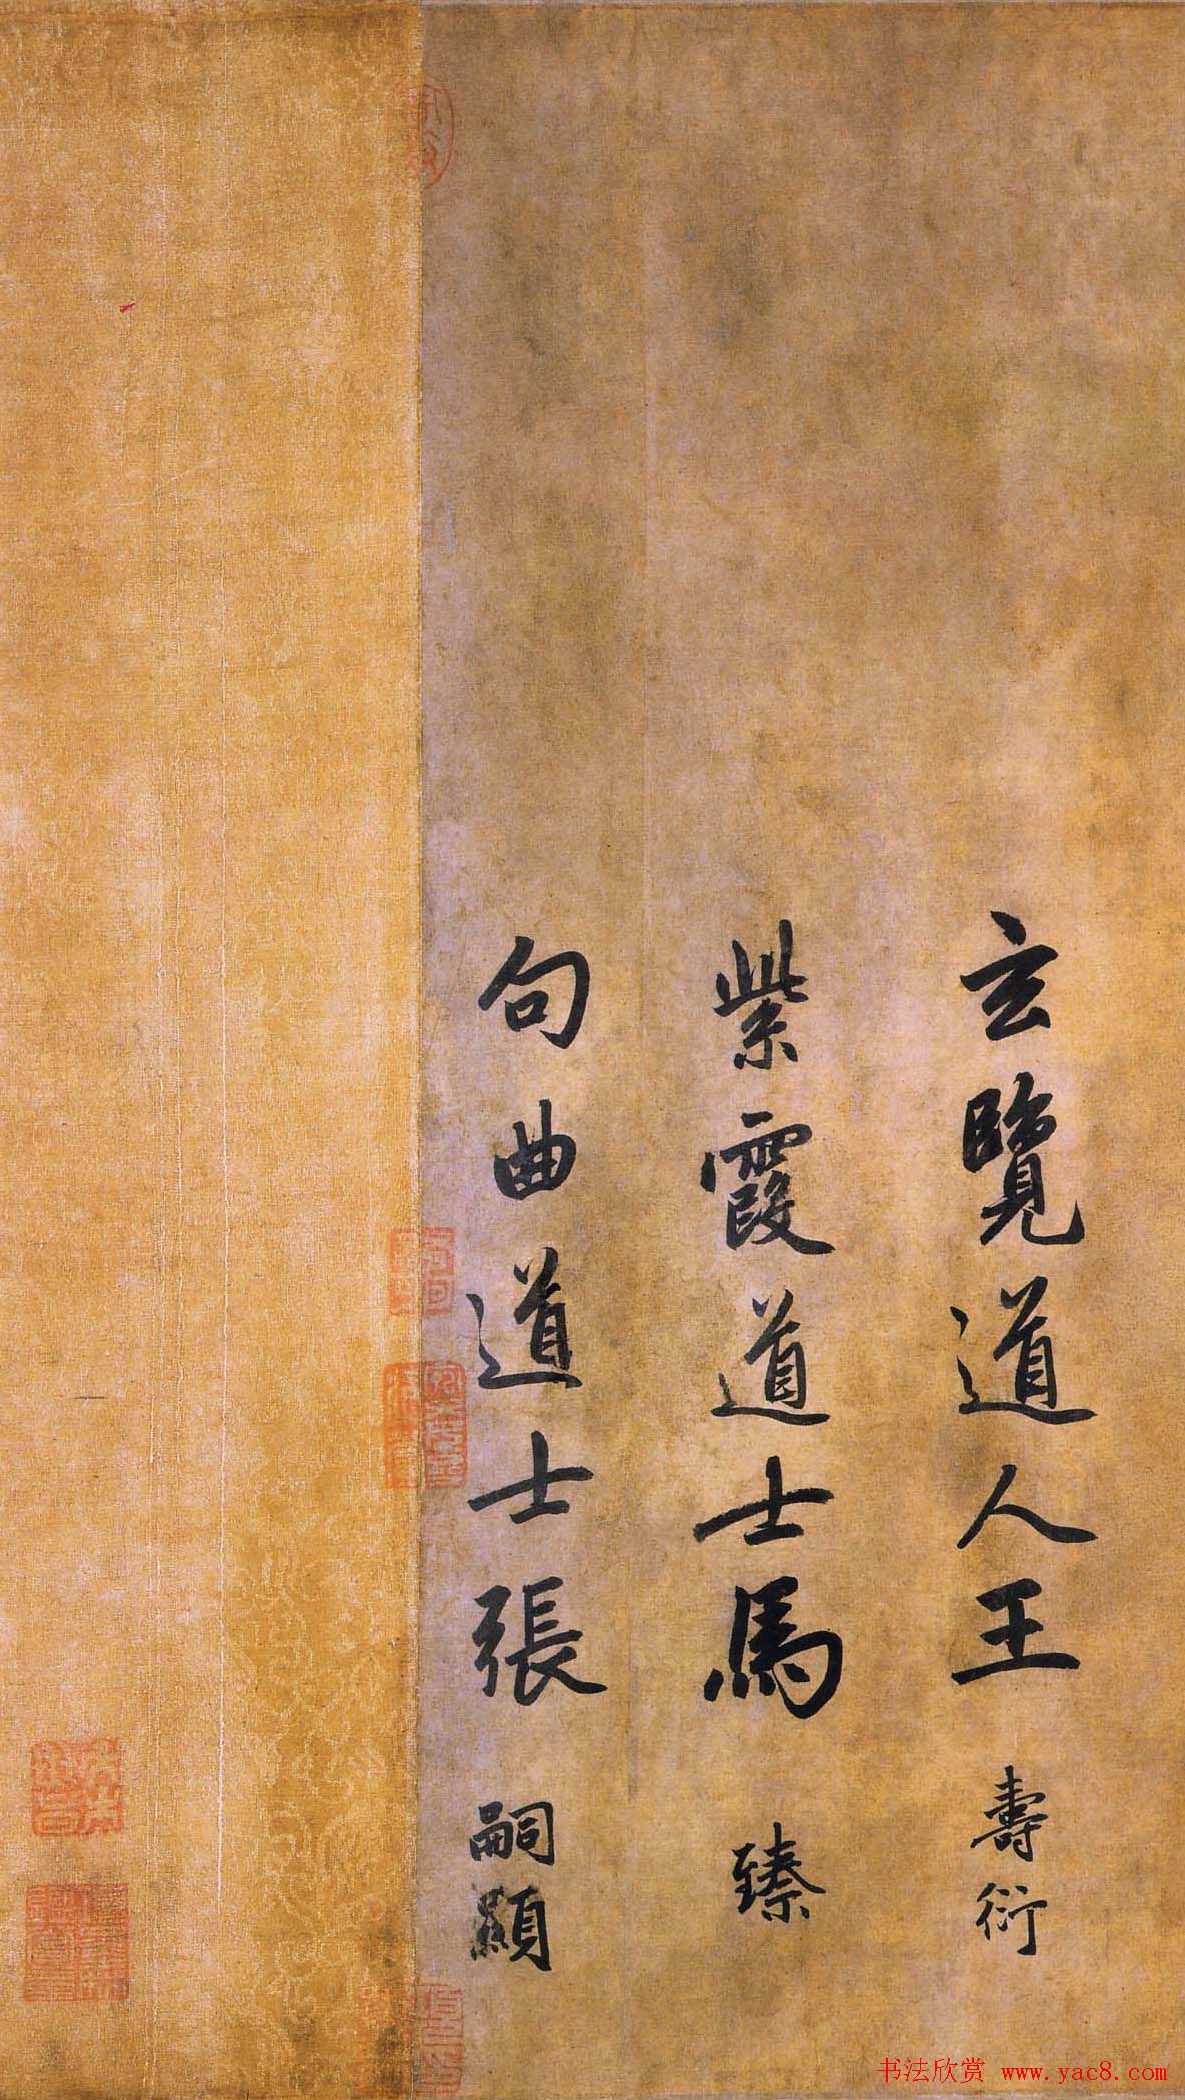 玄覽道人王壽衍
紫霞道士馬臻
句曲道士張嗣顯
书法欣赏 www.yac8.com